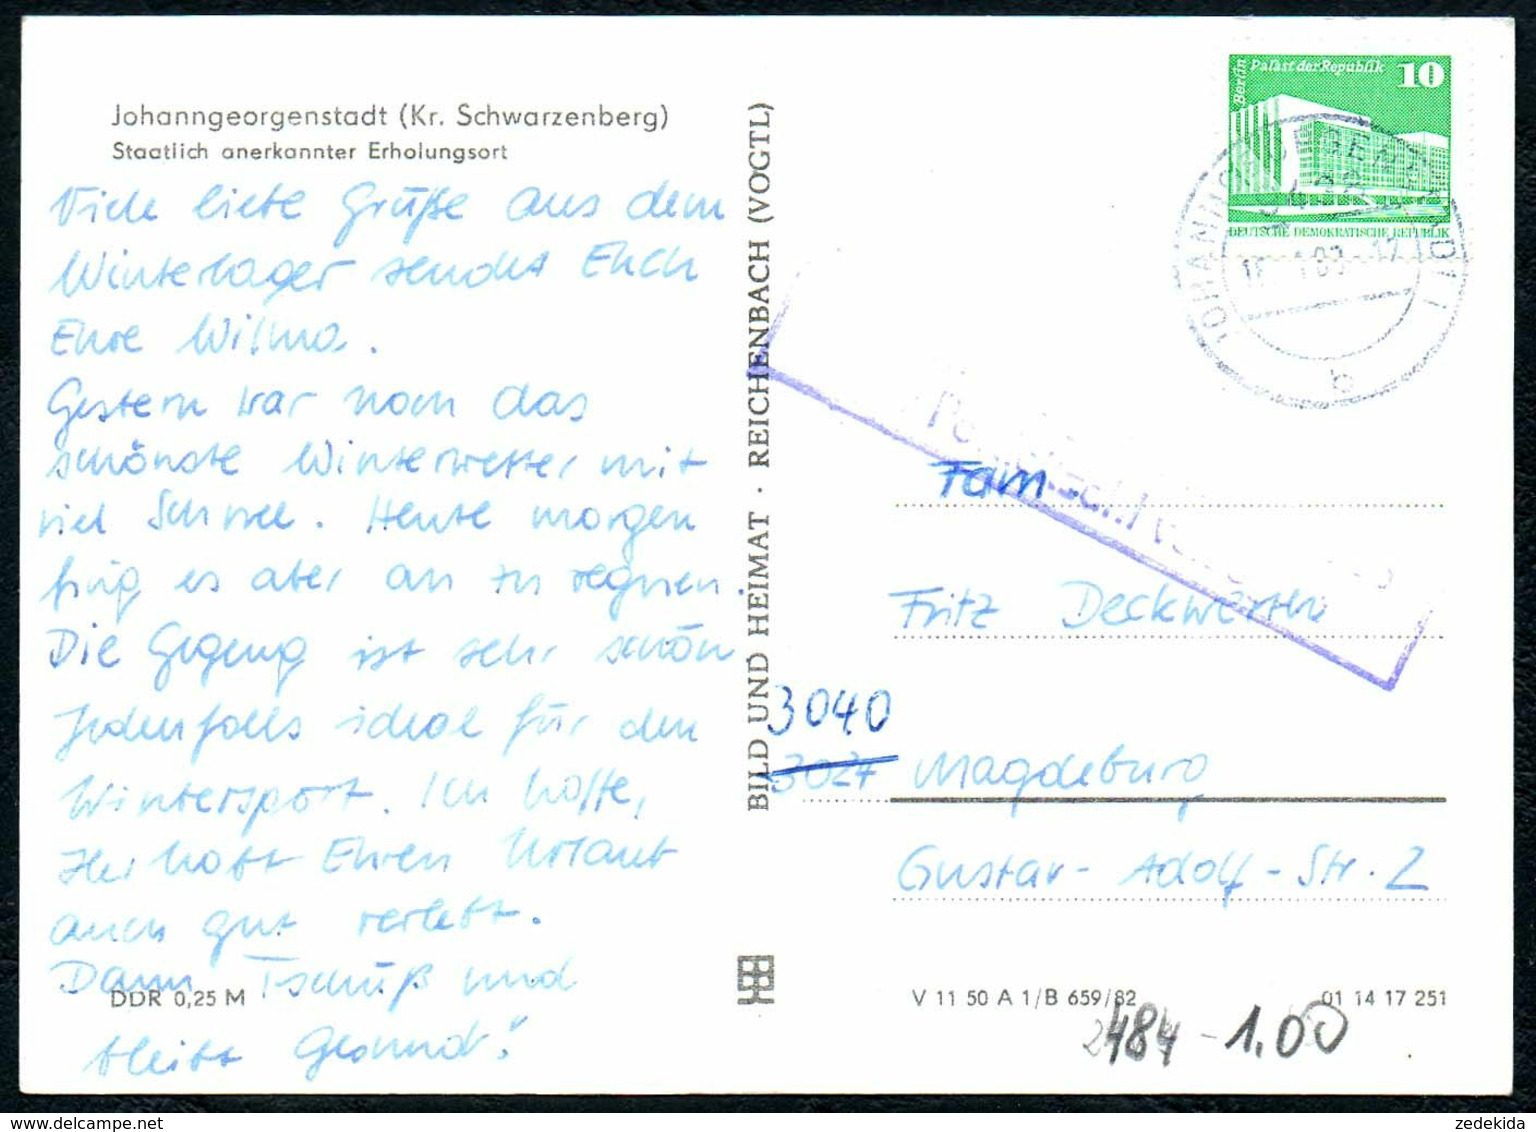 Johanngeorgenstadt (Kr. Schwarzenberg)
Staatlich anerkannter Erholungsort
Viele liebe Grüße aus dem
Winterlager sendet Euch
Eure Wilma.
Gestern war noch das
schönste Winterwetter mit
viel Schnee. Heute morgen
fing es aber an zu regnen.
Die Gegend ist sehr schön
Jedenfalls ideal für den
Wintersport. Ich hoffe,
Ihr habt Euren Urlaub
auch gut verlebt.
Dann Tschüß und
bleibt Gesund!
DDR 0,25 M
BILD UND HEIMAT · REICHENBACH (VOGTL)
Berlin Palast der Republik 10
DEUTSCHE DEMOKRATISCHE REPUBLIK
JOHANNGEORGENSTADT 1
b
Fam
Fritz Deckwerth
3040
3027 Magdeburg
Gustav-Adolf-Str. 2
V 11 50 A 1/B 659/82
01 14 17 251
2484 - 1.00
delcampe.net
zedekida